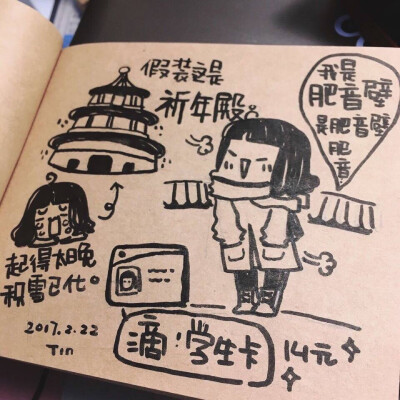 假装这是
祈年殿。
我是
肥音壁
是肥音壁
肥
音
起得太晚
积雪已化。
2017.2.22
Tin
滴!学生卡
14元